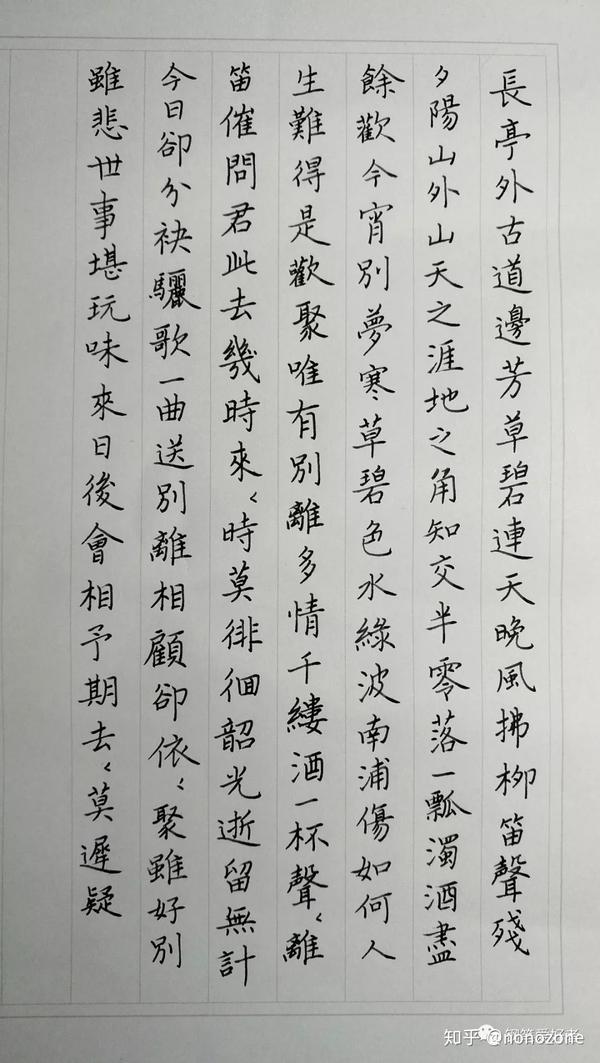 長亭外古道邊芳草碧連天晚風拂柳笛聲殘
夕陽山外山天之涯地之角知交半零落一瓢濁酒盡
餘歡今宵別夢寒草碧色水綠波南浦傷如何人
生難得是歡聚唯有別離多情千縷酒一杯聲〻離
笛催問君此去幾時來〻時莫徘徊韶光逝留無計
今日卻分袂驪歌一曲送別離相顧卻依〻聚雖好別
雖悲世事堪玩味來日後會相予期去〻莫遲疑
知乎 @nonozone
钢笔爱好者